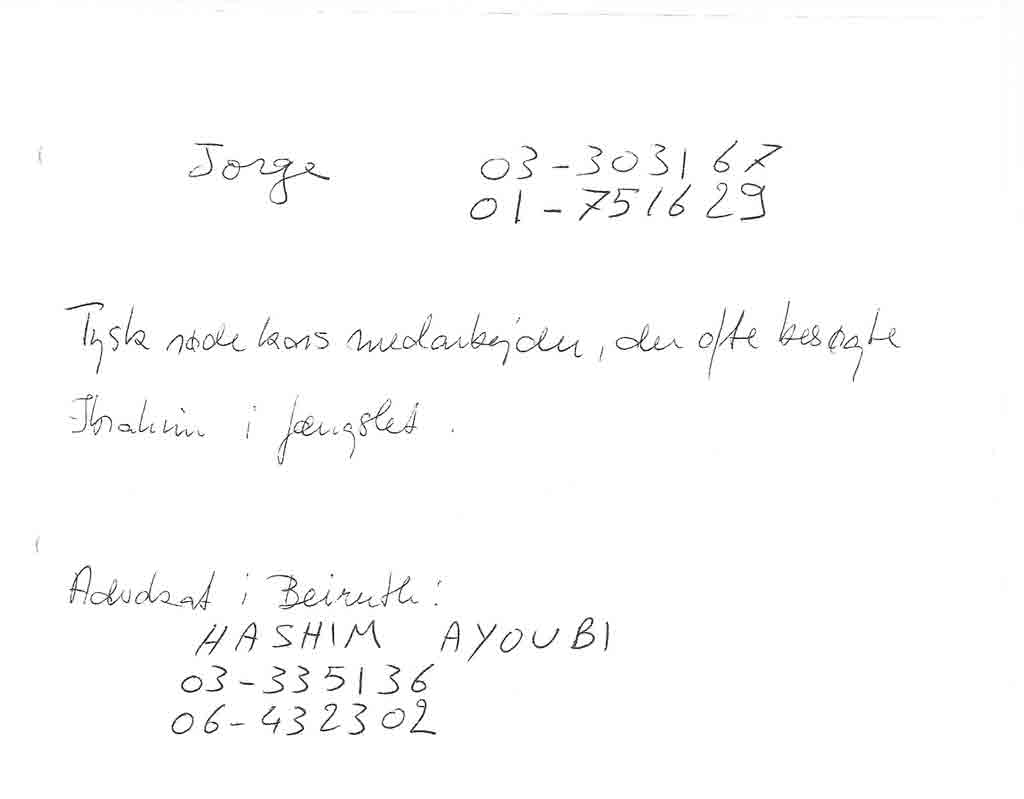 Jorge 03-303167
01-751629
Tysk røde kors medarbejder, der ofte besøgte
Ibrahim i fængslet.
Advokat i Beiruth:
HASHIM AYOUBI
03-335136
06-432302